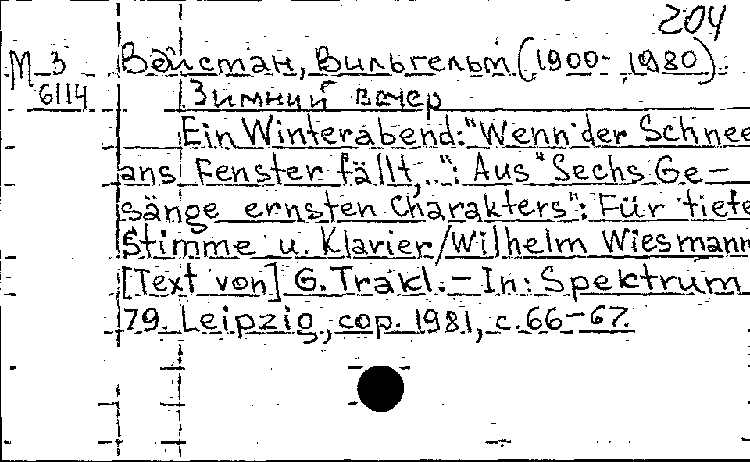 204
М 3 Вайсман, Вильгельм (1900-1980).
6114 Зимний вечер
Ein Winterabend: "Wenn der Schnee
ans Fenster fällt,..": Aus "Sechs Ge-
sänge ernsten Charakters": Für tiefe
Stimme u. Klavier/Wilhelm Wiesmann
[Text von] G. Trakl. - In: Spektrum
79. Leipzig, cop. 1981, с. 66-67.